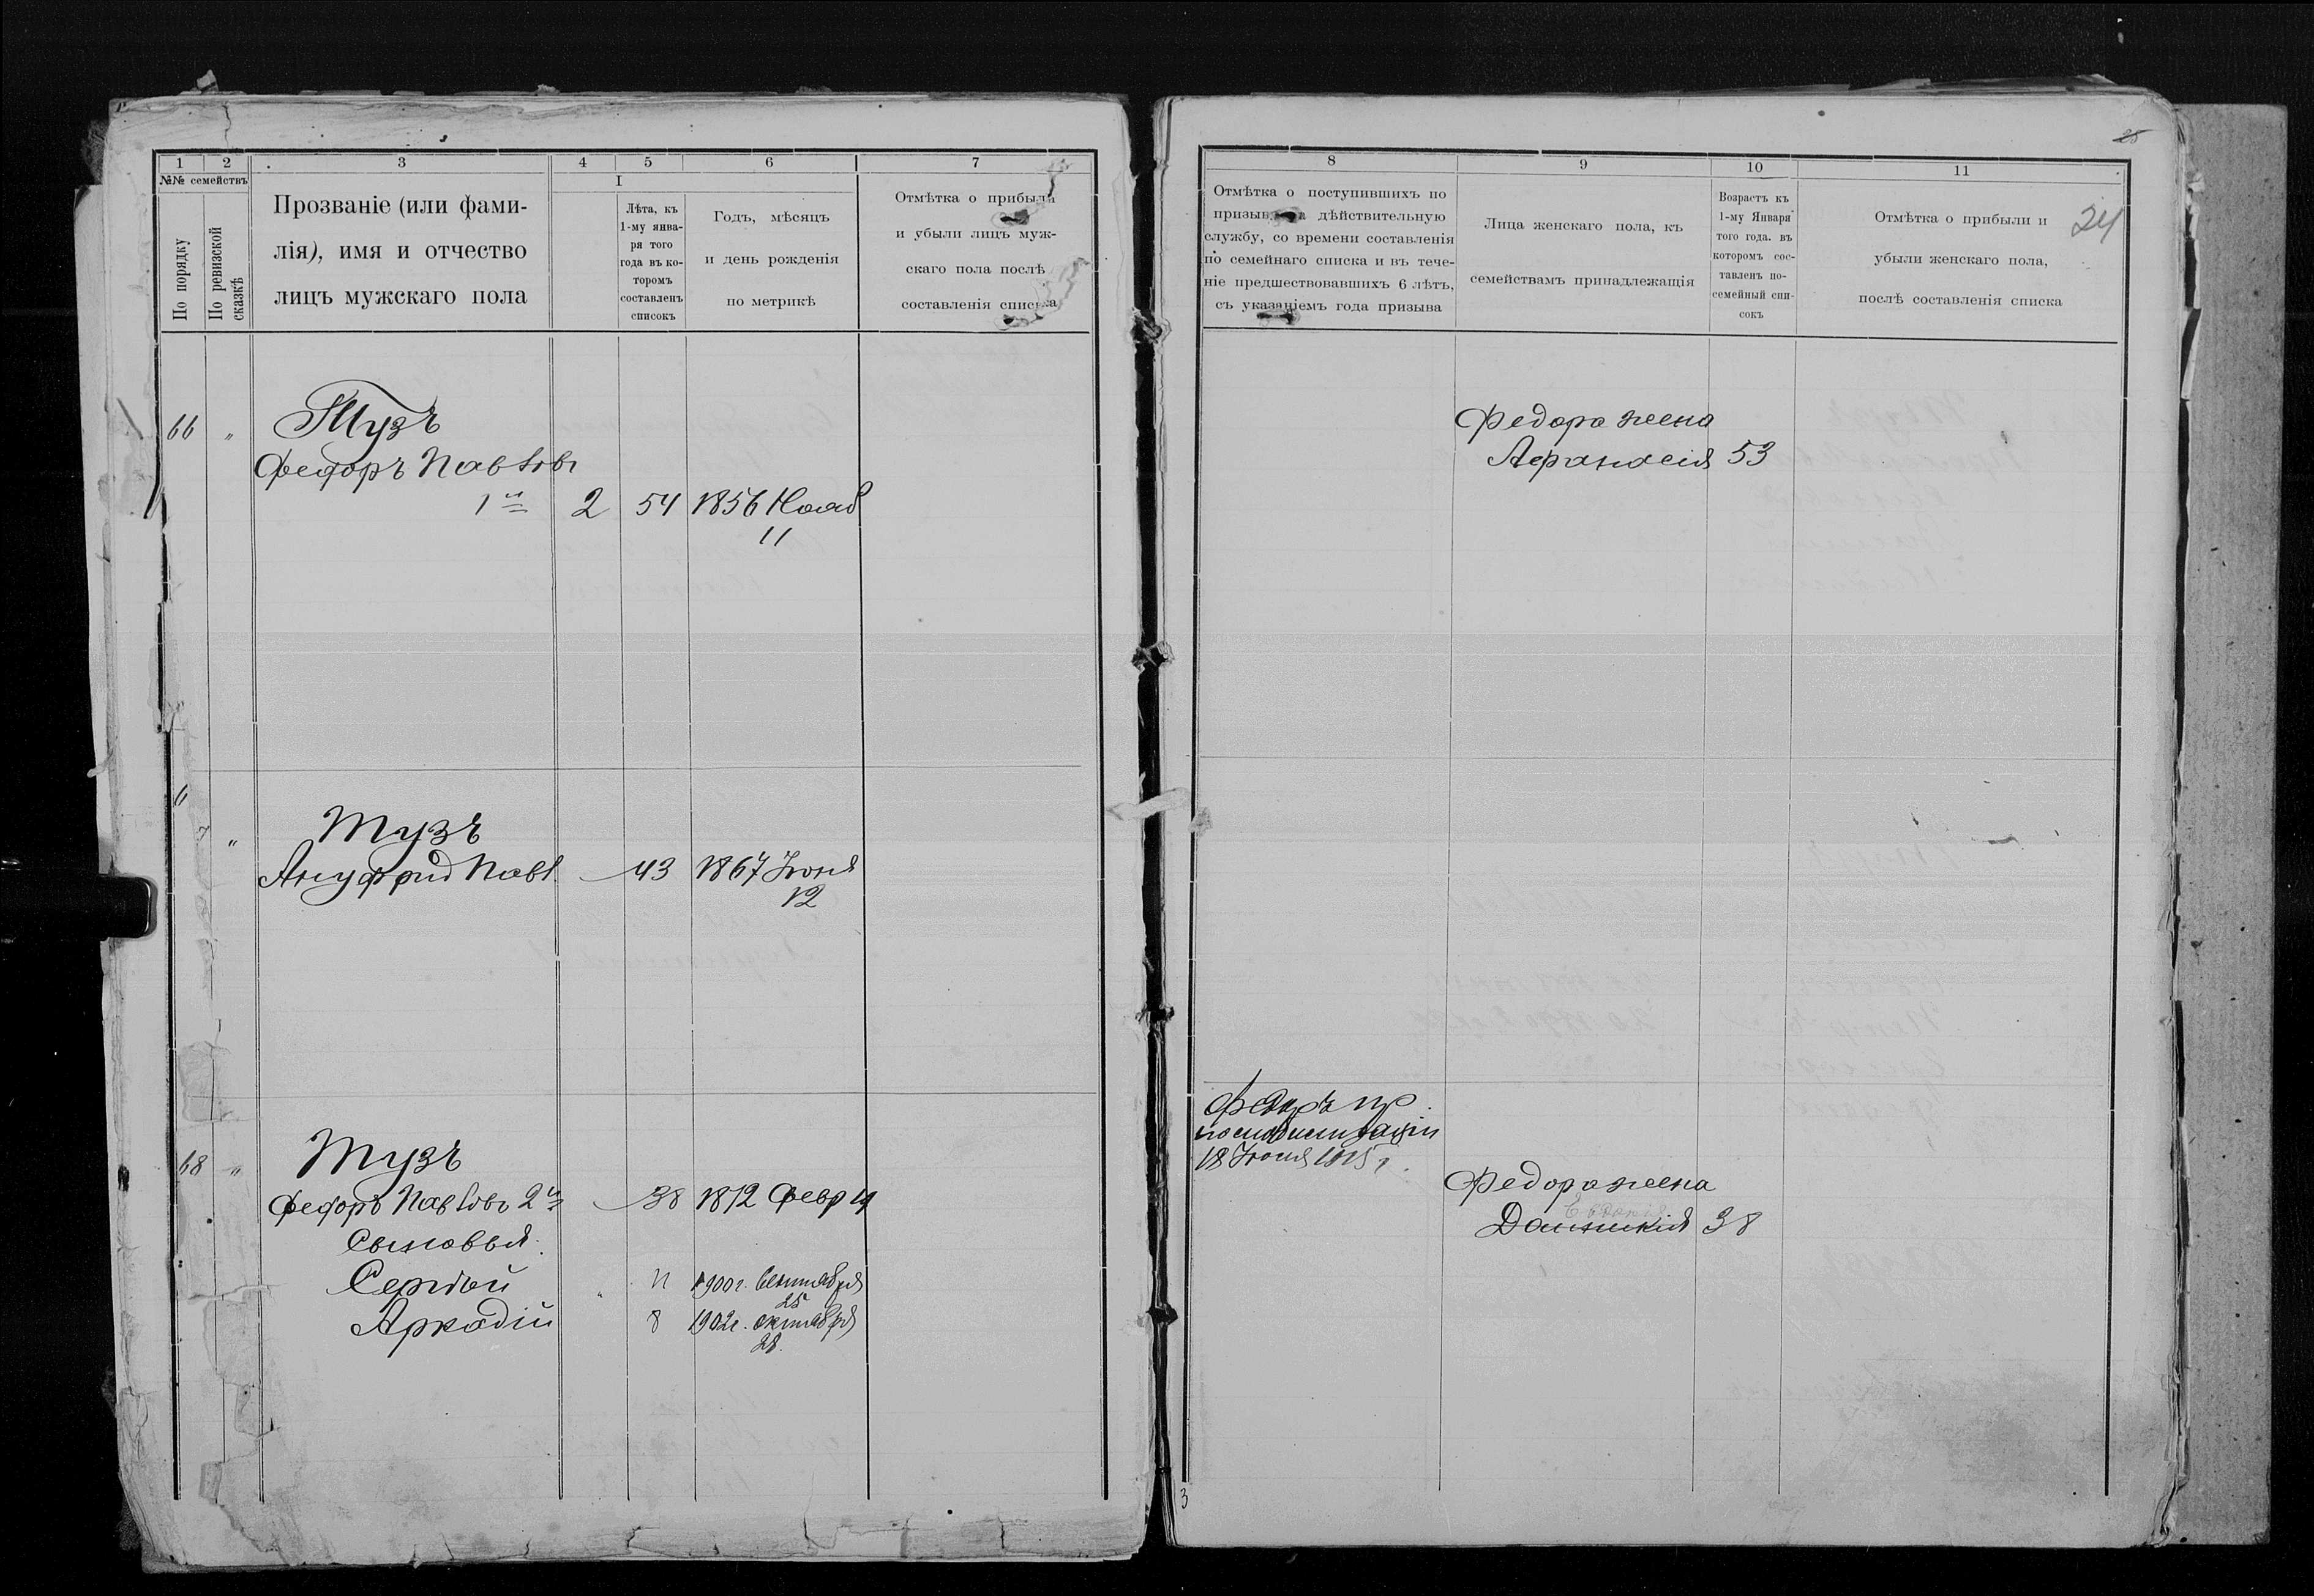 1 2 3 4 5 6 7
№№ семействъ
По порядку
По ревизской сказкѣ
Прозваніе (или фами-
лія), имя и отчество
лицъ мужскаго пола
I
Лѣта, къ
1-му янва-
ря того
года въ ко-
торомъ
составленъ
списокъ
Годъ, мѣсяцъ
и день рожденія
по метрикѣ
Отмѣтка о прибыли
и убыли лицъ муж-
скаго пола послѣ
составленія списка
66 „ Тузъ
Федоръ Павловъ
1й 2 54 1856 Нояб
11
„ Тузъ
Ануфрій Павл. 43 1867 Іюня
12
68 „ Тузъ
Федоръ Павловъ 2й 38 1872 Февр 4
Сыновья:
Сергѣй 11 1900г. Сентября
25
Аркадій 8 1902г. октября
28.
8 9 10 11
Отмѣтка о поступившихъ по
призыву на дѣйствительную
службу, со времени составленія
по семейнаго списка и въ тече-
ніе предшествовавшихъ 6 лѣтъ,
съ указаніемъ года призыва
Лица женскаго пола, къ
семействамъ принадлежащія
Возрастъ къ
1-му Января
того года. въ
которомъ сос-
тавленъ по-
семейный спи-
сокъ
Отмѣтка о прибыли и
убыли женскаго пола,
послѣ составленія списка
24
Федора жена
Афанасія 53
Федоръ пр.
по мобилизаціи
18 Іюля 1915 г.
Федора жена
Домникія 38
3